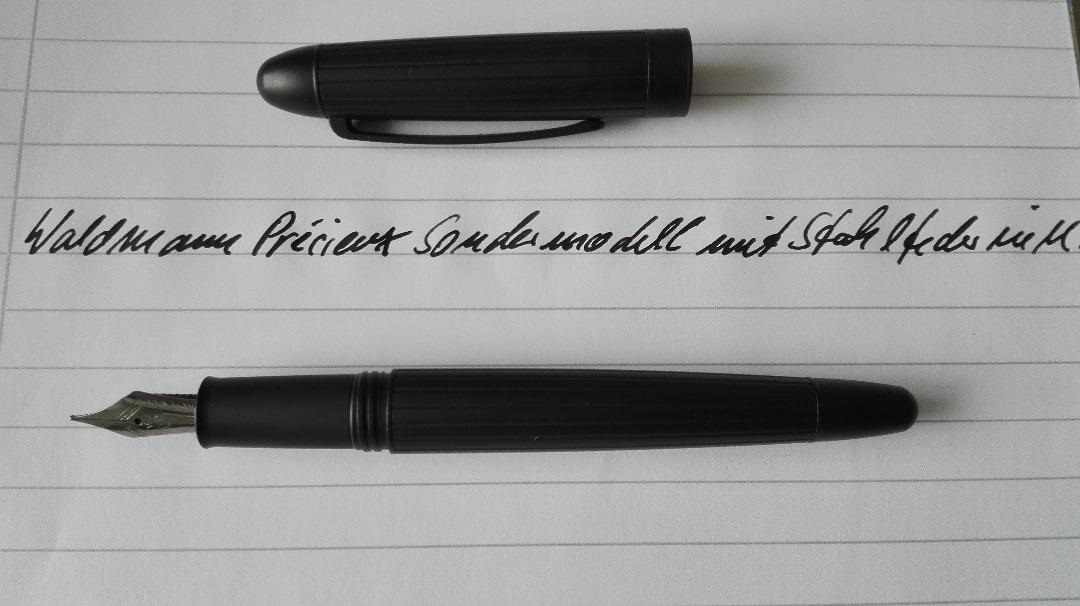 Waldmann Précieux Sondermodell mit Stahlfeder in M.